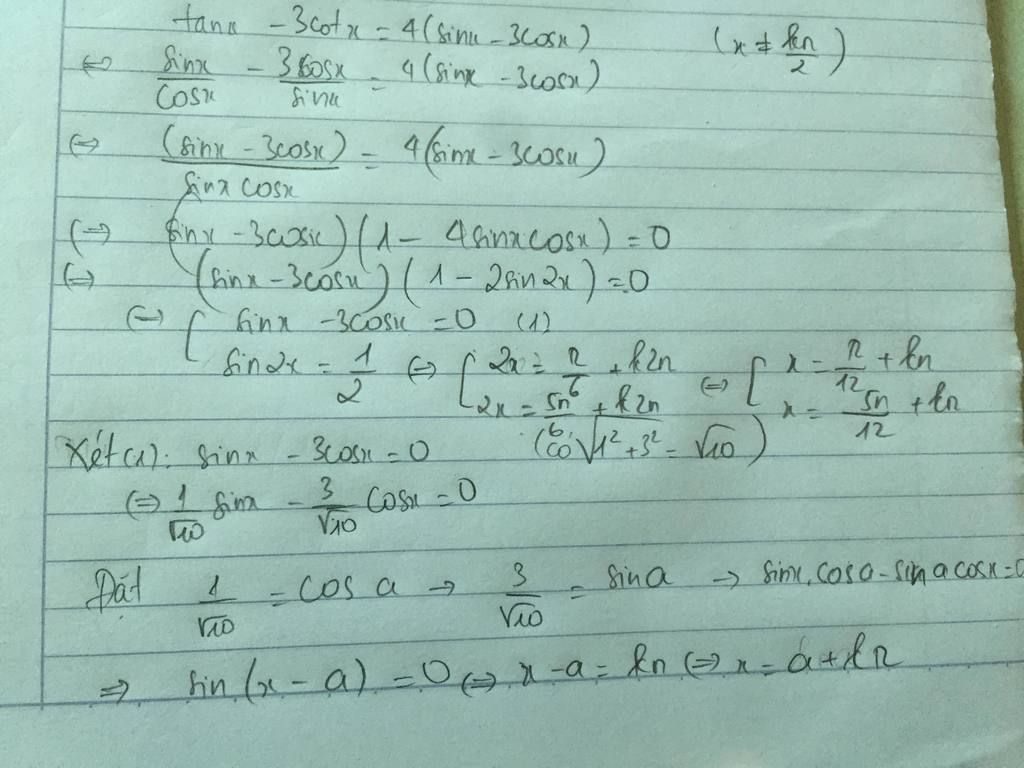 tanx - 3cotx = 4(sinx - 3cosx) (x ≠ kπ/2)
⇔ sinx/cosx - 3cosx/sinx = 4(sinx - 3cosx)
⇔ (sinx - 3cosx)/sinx cosx = 4(sinx - 3cosx)
⇔ (sinx - 3cosx)(1 - 4sinxcosx) = 0
⇔ (sinx - 3cosx)(1 - 2sin2x) = 0
⇔ [ sinx - 3cosx = 0 (1)
sin2x = 1/2 ⇔ [ 2x = π/6 + k2π ⇔ [ x = π/12 + kπ
2x = 5π/6 + k2π x = 5π/12 + kπ
Xét (1): sinx - 3cosx = 0 (Có √1² + 3² = √10)
⇔ 1/√10 sinx - 3/√10 cosx = 0
Đặt 1/√10 = cos a → 3/√10 = sin a → sinx.cosa - sin a cosx = 0
⇒ sin(x - a) = 0 ⇔ x - a = kπ ⇔ x = a + kπ